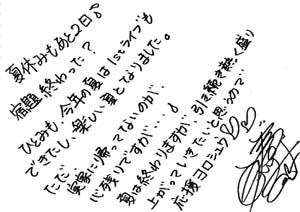 夏休みもあと2日♪
宿題終わった?
ひとみも、今年の夏は1stライブも
できたし、楽しい夏となりました。
ただ、実家に帰ってないのが、
心残りですが…♪
夏は終わりますが、引き続き熱く盛り
上がっていきたいと思うので
応援ヨロシュウ♡♡